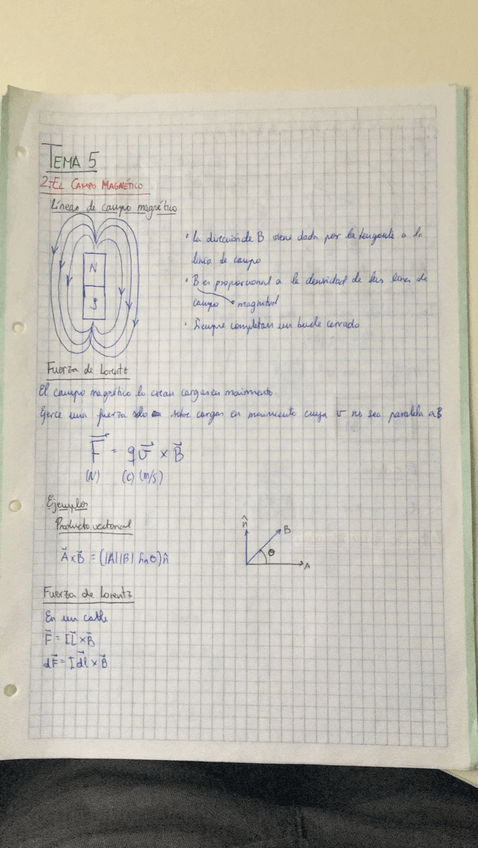 TEMA 5
2. EL CAMPO MAGNÉTICO
Líneas de campo magnético
N
S
• La dirección de B viene dada por la tangente a la
línea de campo
• B es proporcional a la densidad de las líneas de
campo. magnitud
• Siempre completan un bucle cerrado
Fuerza de Lorentz
El campo magnético lo crean cargas en movimiento.
Ejerce una fuerza sólo sobre cargas en movimiento cuya v no sea paralela a B
F⃗ = q v⃗ × B⃗
(N) (C) (m/s)
Ejemplos
Producto vectorial
A⃗ × B⃗ = (|A||B| sen θ) n̂
n̂
B
θ
A
Fuerza de Lorentz
En un cable
F⃗ = I l⃗ × B⃗
dF⃗ = I dl⃗ × B⃗